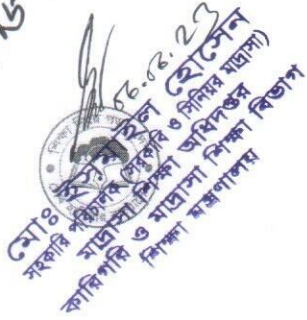 ০৮.০৮.২৩
মোঃ হোসেন
সহকারি পরিচালক (সরকারি ও সিনিয়র মাদ্রাসা)
মাদ্রাসা শিক্ষা অধিদপ্তর
কারিগরি ও মাদ্রাসা শিক্ষা বিভাগ
শিক্ষা মন্ত্রণালয়